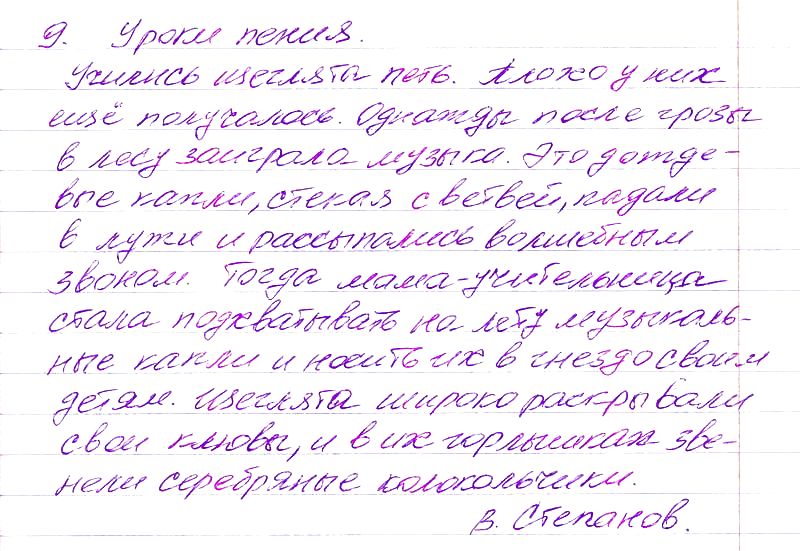 9. Уроки пения.
Учились щеглята петь. Плохо у них
ещё получалось. Однажды после грозы
в лесу заиграла музыка. Это дожде-
вые капли, стекая с ветвей, падали
в лужи и рассыпались волшебным
звоном. Тогда мама-учительница
стала подхватывать на лету музыкаль-
ные капли и носить их в гнездо своим
детям. Щеглята широко раскрывали
свои клювы, и в их горлышках зве-
нели серебряные колокольчики.
В. Степанов.